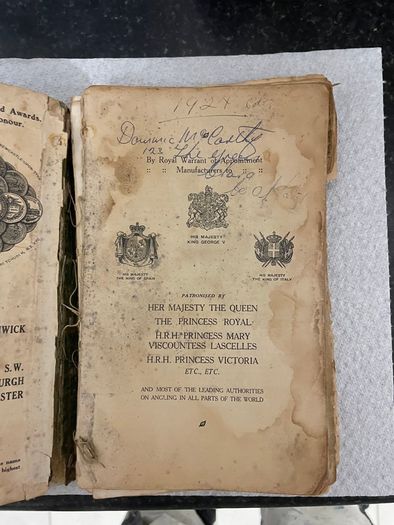 d Awards.
onour.
NWICK
S.W.
URGH
STER
e name
highest
1924
Dominic McCarthy
123 The
By Royal Warrant of Appointment
:: :: Manufacturers to :: ::
HIS MAJESTY
KING GEORGE V
HIS MAJESTY
THE KING OF SPAIN
HIS MAJESTY
THE KING OF ITALY
PATRONISED BY
HER MAJESTY THE QUEEN
THE PRINCESS ROYAL
H.R.H. PRINCESS MARY
VISCOUNTESS LASCELLES
H.R.H. PRINCESS VICTORIA
ETC., ETC.
AND MOST OF THE LEADING AUTHORITIES
ON ANGLING IN ALL PARTS OF THE WORLD